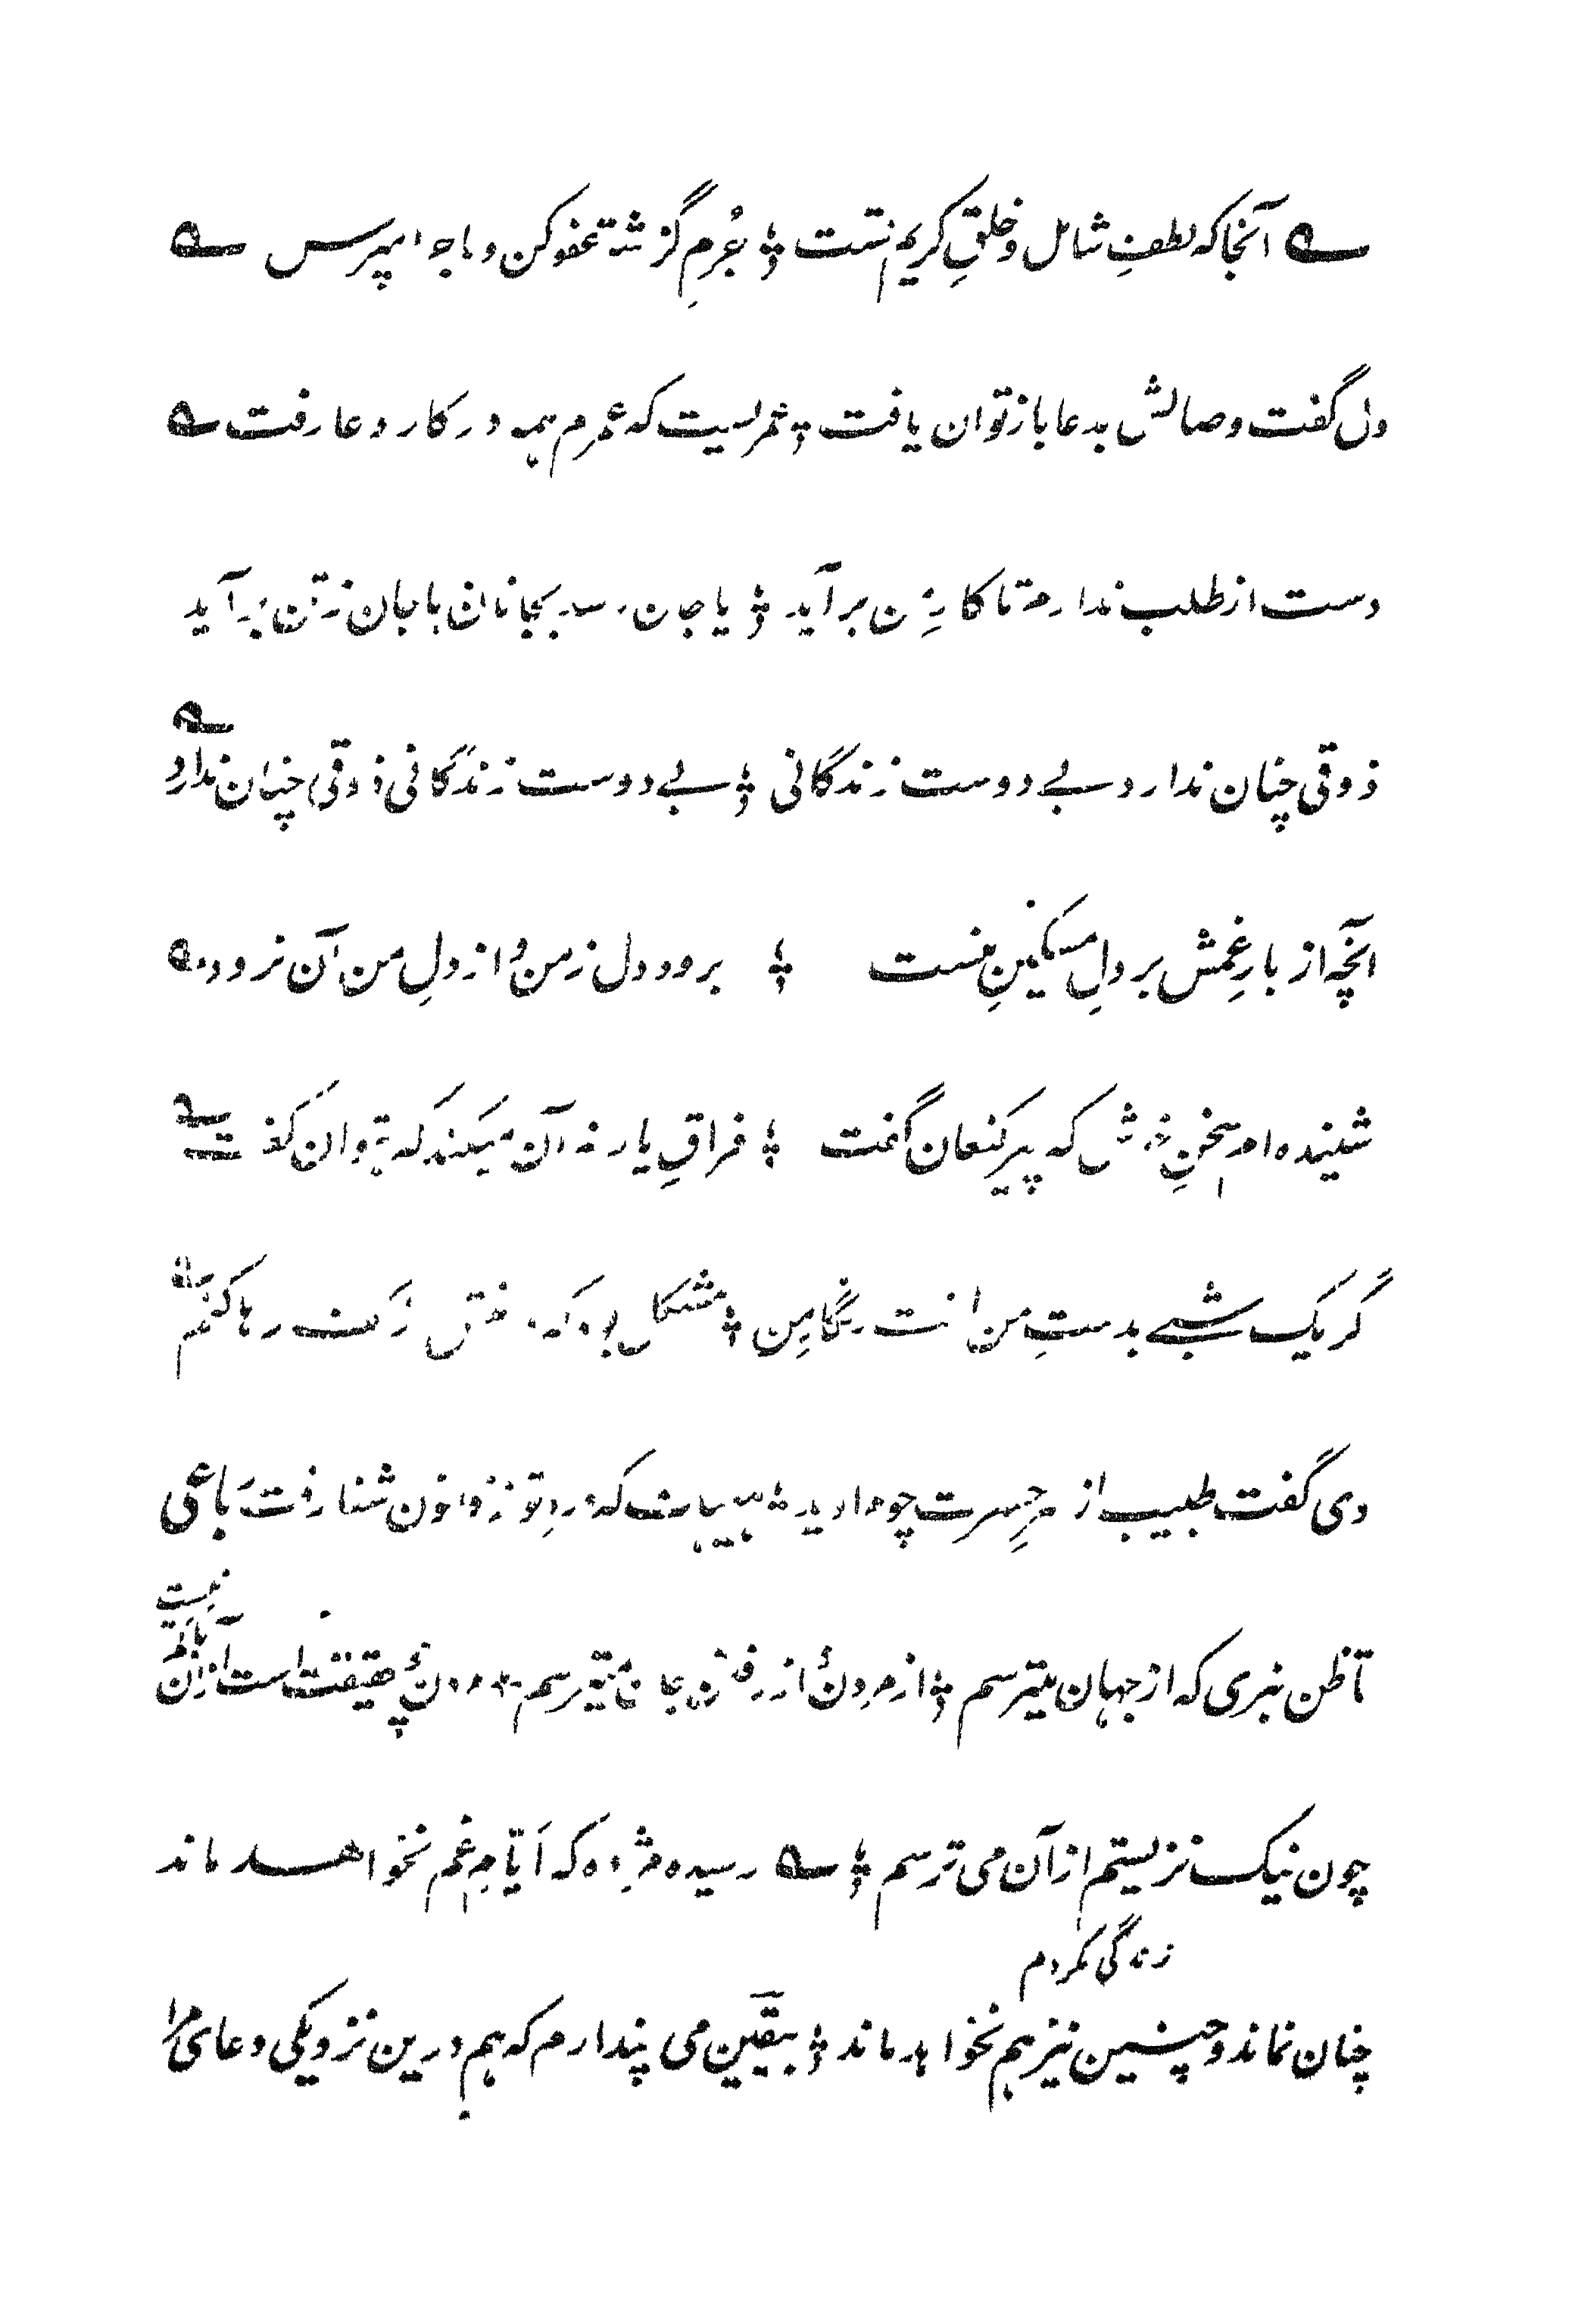 آنجا که لطفِ شامل و خلقِ کریم تست ؛ جُرمِ گزشته عفو کن و ماجرا مپرس
دل گفت وصالش بدعا باز توان یافت ؛ عمریست که عمرم همه در کار دعا رفت
دست از طلب ندارم تا کار من برآید ؛ یا جان رسد بجانان یا جان ز تن برآید
ذوقی چنان ندارد بے دوست زندگانی ؛ بے دوست زندگانی ذوقی چنان ندارد
آنچه از بارِ غمش بر دلِ مسکینِ منست ؛ برود دل ز من و از دلِ من آن نرود
شنیده ام سخنِ خوش که پیر کنعان گفت ؛ فراقِ یار نه آن میکند که بتوان گفت
گر یک شبے بدستِ من افتد نگار من ؛ مشکل بود که دامنش ز کف رها کنم
دی گفت طبیب از سرِ حسرت چو مرا دید ؛ هیهات که دردِ تو ز قانون شفا رفت رباعی
تا ظن نبری که از جهان میترسم ؛ از مردن و از رفتن جان میترسم مردن چو حقیقت است ازان
باکم نیست
چون نیک نزیستم از آن می ترسم ؛ رسیده مژده که ایّامِ غم نخواهد ماند
زندگی نکردم
چنان نماند و چنین نیز هم نخواهد ماند ؛ بیقین می پندارم که هم درین نزدیکی دعای مرا